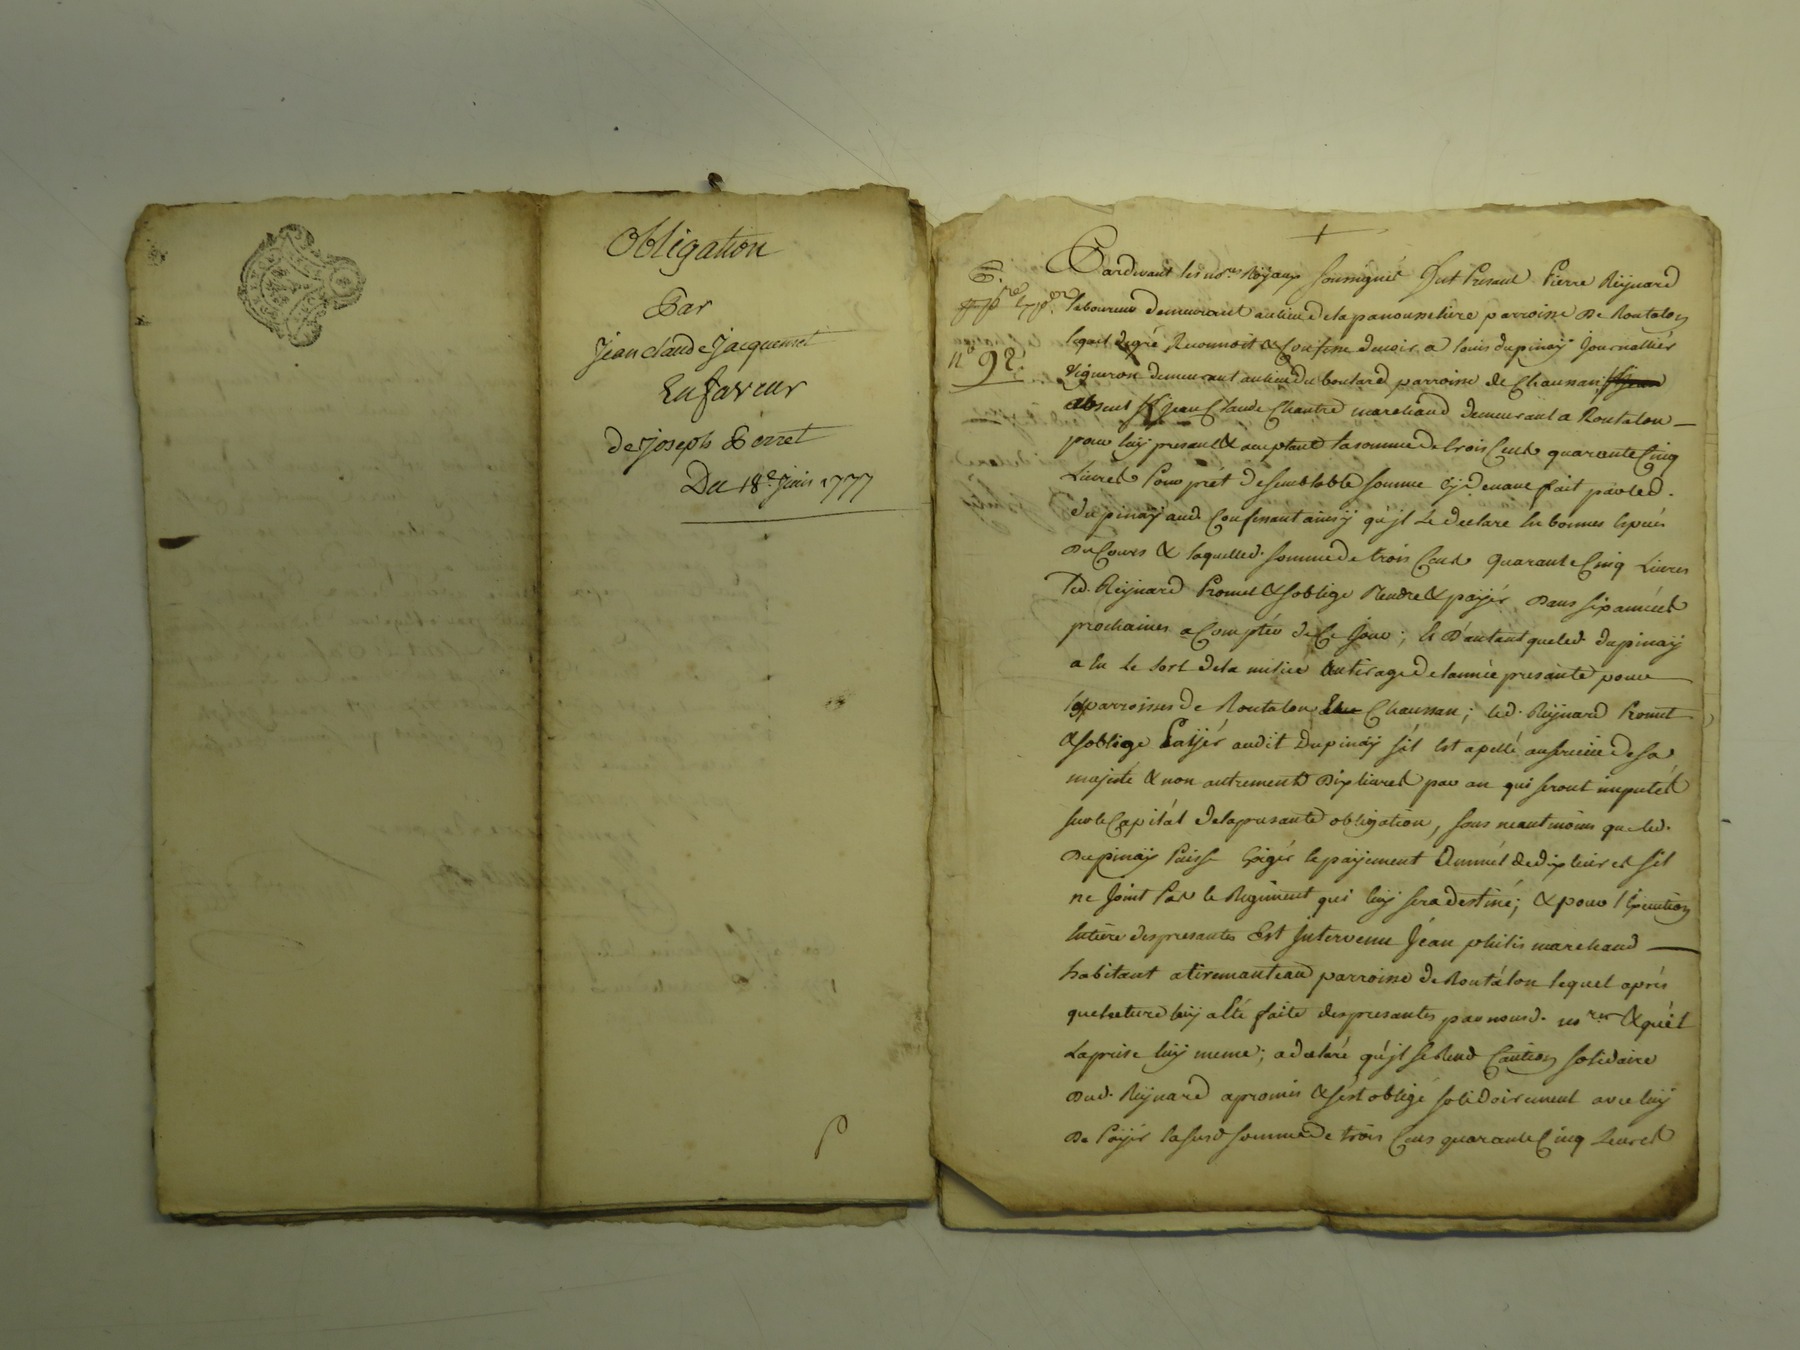 Obligation
Par
Jean claude Jacquemet
En faveur
de Joseph Perret
Du 18e. juin 1777
+
Pardevant les nores. Royaux soussignés fut Present Pierre Reynard
laboureur demeurant au lieu de la panousetiere parroisse De Rontalon
lequel de gré Reconnoit & Confesse devoir a louis dupinay Journallier
Vigneron demeurant au lieu du boulard parroisse de Chaussan
absent Sr. jean Claude Chantre marchand demeurant a Rontalon
pour luy presant & acceptant la somme de trois Cents quarante Cinq
Livres Pour prêt de semblable somme cy devant fait par led.
dupinay aud. Confessant ainsy qu'il Le declare En bonnes Especes
Du Cours & laquelle d. somme de trois Cents Quarante Cinq Livres
led. Reynard Promet & s'oblige Rendre & payér Dans six années
prochaines a Comptér de Ce Jour; Et D'autant que led. dupinay
a Eu Le sort de la milice au tirage de l'année presante pour
les parroisses de Rontalon Chaussan; led. Reynard Promet
& s'oblige Payér audit Dupinay s'il Est apellé au service de sa
majesté & non autrement Dix livres par an qui seront imputés
sur le Capital de la presante obligation, sans neantmoins que led.
Dupinay Puisse Exigér le payement Annuel de dix livres s'il
ne Joint Pas le Regiment qui luy sera destiné; & pour l'Execution
Entiere des presantes Est Intervenu Jean philis marchand
habitant a tiremanteau parroisse de Rontalon lequel aprés
que lecture luy a Eté faite des presantes par nousd. nores & qu'il
La prise luy meme; a declaré qu'il se Rend Caution solidaire
Dud. Reynard a promis & s'est obligé solidairement avec luy
De Payér la susd. somme de trois Cens quarante Cinq Livres
n° 92.